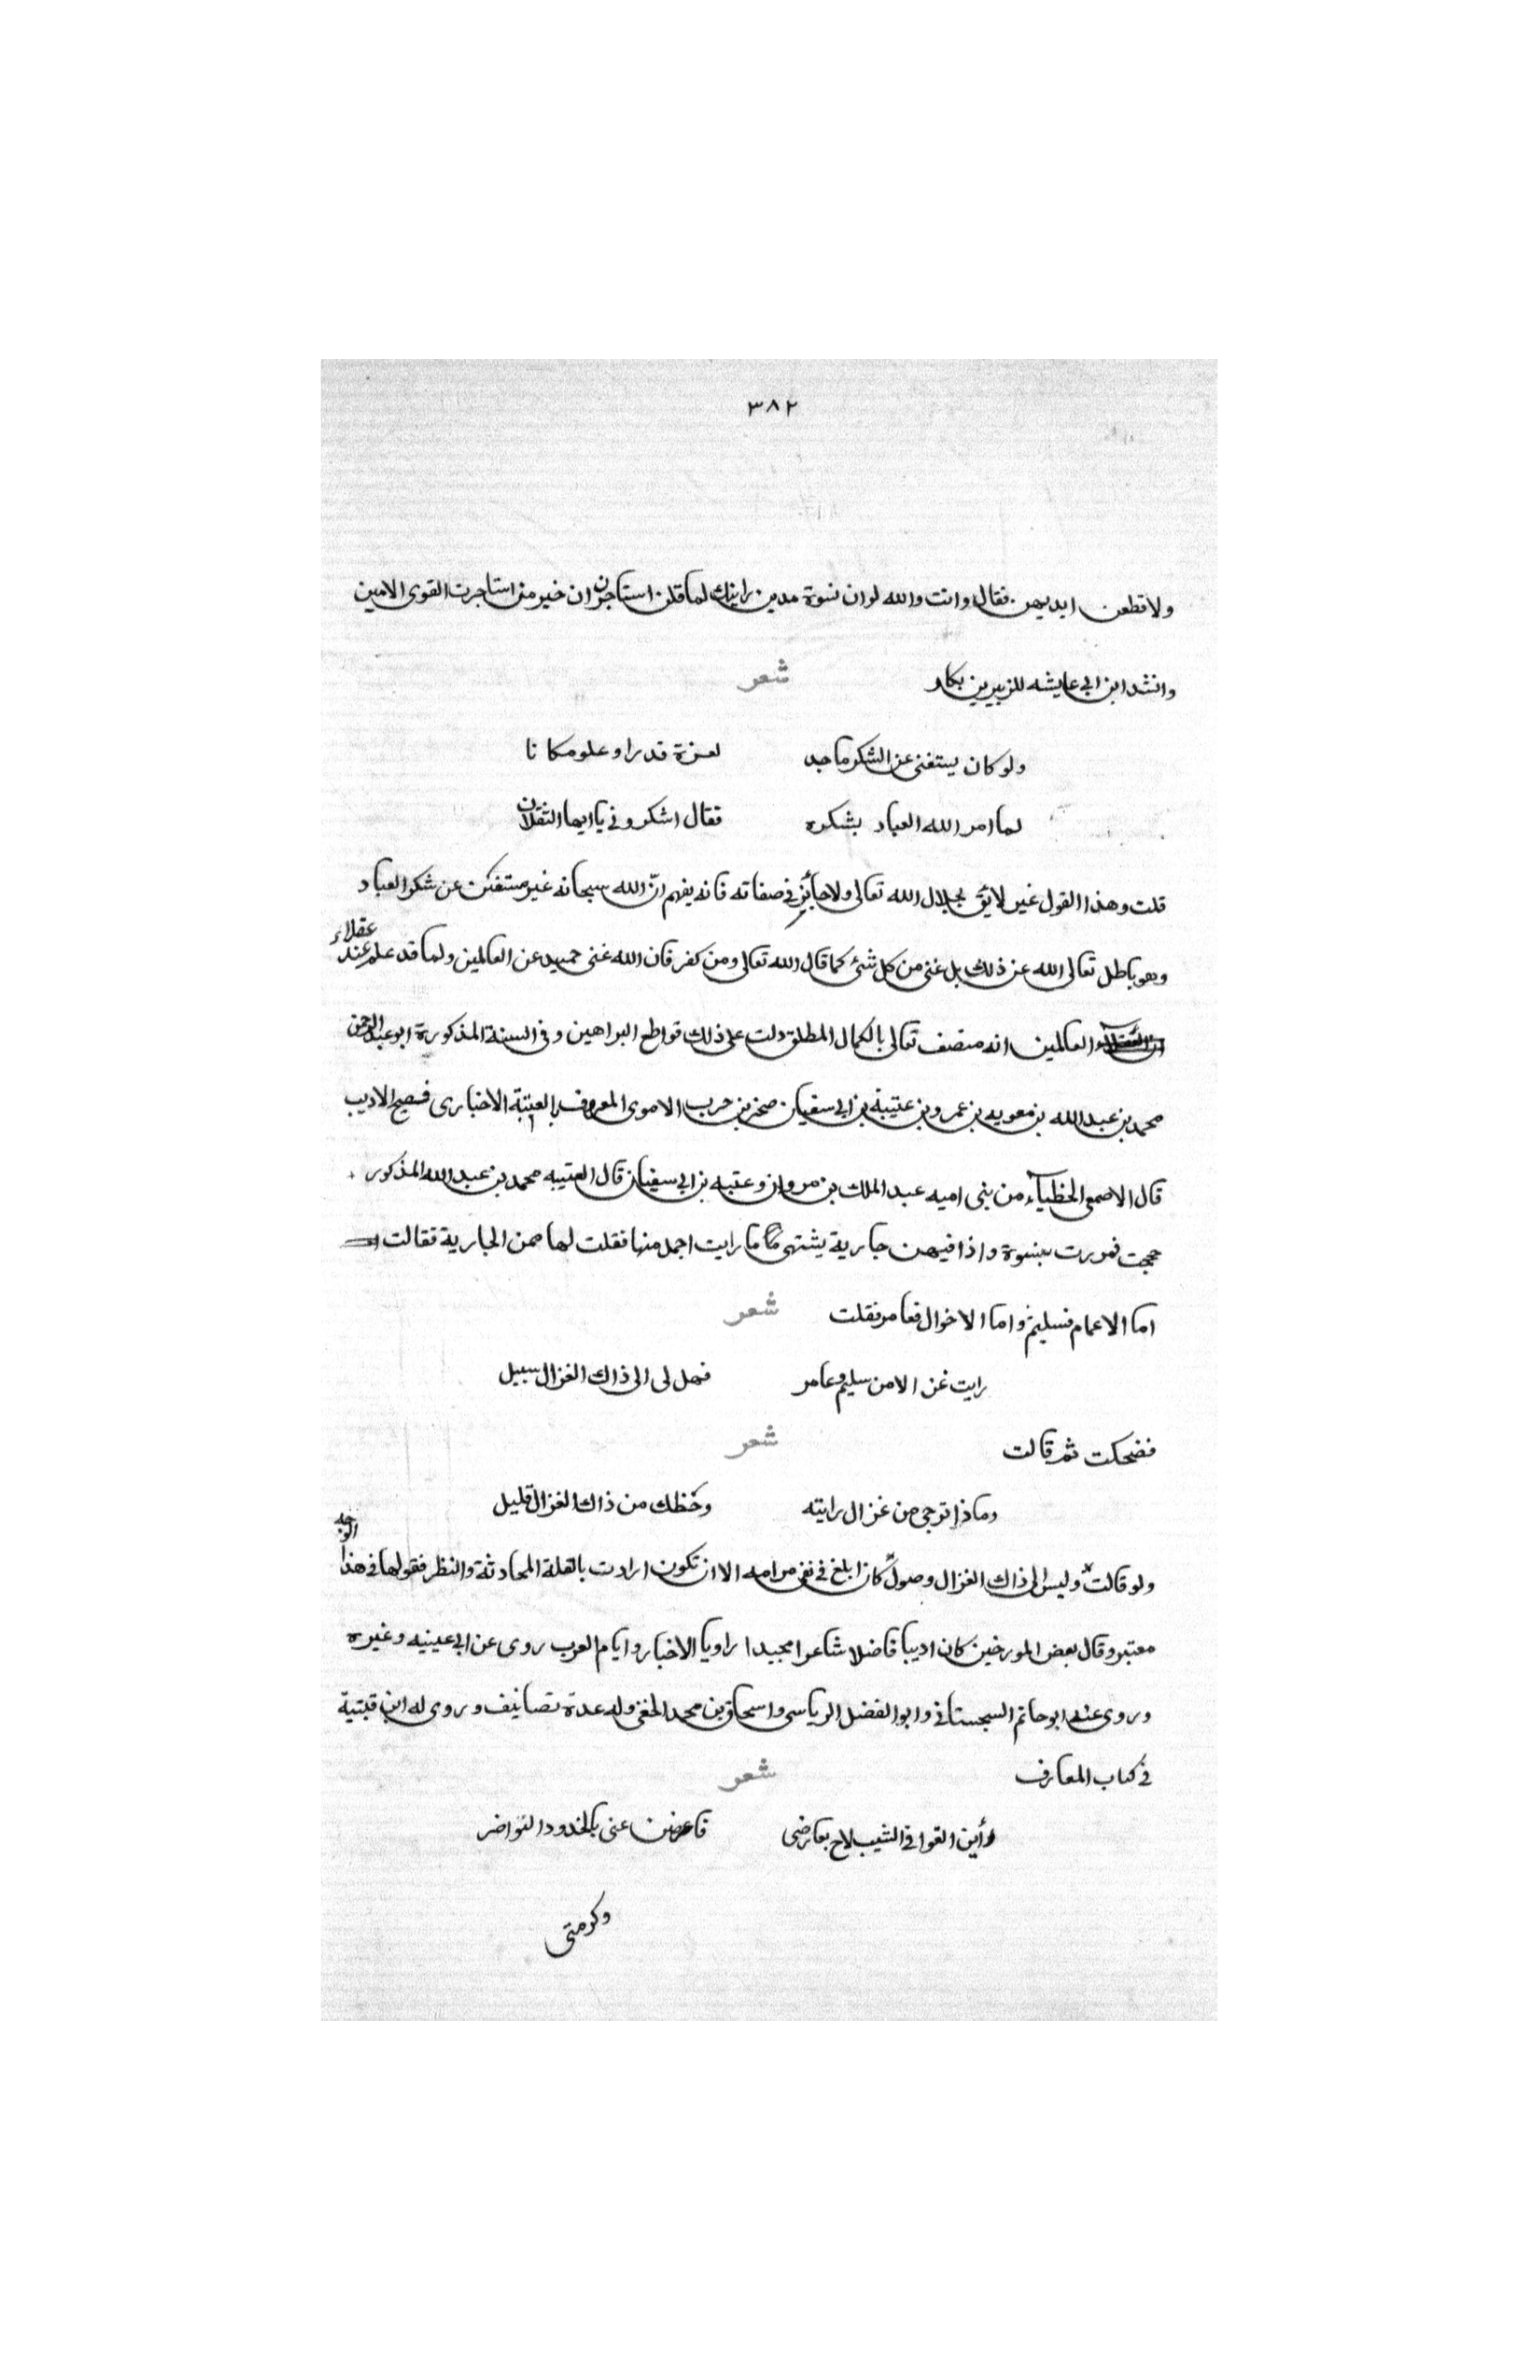 ٣٨٢
ولا قطعن ايديهن فقال وانت والله لو ان نسوة مدين راينك لما قلن استاجره ان خير من استاجرت القوى الامين
وانشد ابن ابى عايشه للزبير بن بكار شعر
ولو كان يستغنى عن الشكر ماجد لعزة قدر او علو مكانا
لما امر الله العباد بشكره فقال اشكرونى يا ايها الثقلان
قلت وهذا القول غير لائق بجلال الله تعالى ولا جائز فى صفاته فانه يفهم انّ الله سبحانه غير مستغن عن شكر العباد
وهو باطل تعالى الله عن ذلك بل غنى من كل شئ كما قال الله تعالى ومن كفر فان الله غنى حميد عن العالمين ولما قد علم عند عقلاء
العالمين انه متصف تعالى بالكمال المطلق دلت على ذلك قواطع البراهين وفى السنة المذكورة ابو عبد الرحمن
محمد بن عبد الله بن معويه بن عمرو بن عتيبة بن ابى سفيان صخر بن حرب الاموى المعروف بالعتبة الاخبارى فصيح الاديب
قال الاصمعى الخطباء من بنى اميه عبد الملك بن مروان وعتبه بن ابى سفيان قال العتيبه محمد بن عبد الله المذكور
حججت فمررت بنسوة واذا فيهن جارية يشتهى ما رايت اجمل منها فقلت لها ممن الجارية فقالت
اما الاعمام فسليم واما الاخوال فعامر فقلت شعر
رايت غزالا من سليم وعامر فهل لى الى ذاك الغزال سبيل
فضحكت ثم قالت شعر
وماذا ترجى من غزال رايته وحظك من ذاك الغزال قليل
ولو قالت وليس الى ذاك الغزال وصول كان ابلغ فى نفى مرامه الا ان تكون ارادت بالقلة المحادثة والنظر فقولها فى هذا الوجه
معتبر وقال بعض المورخين كان اديبا فاضلا شاعرا مجيدا راويا الاخبار وايام العرب روى عن ابى عيينه وغيره
وروى عنه ابو حاتم السجستانى وابو الفضل الرياسى واسحاق بن محمد النخعى وله عدة تصانيف وروى له ابن قبتية
فى كتاب المعارف شعر
رأين القوافى الشيب لاح بعارضى فاعرضن عنى بالخدود النواضر
وكن متى